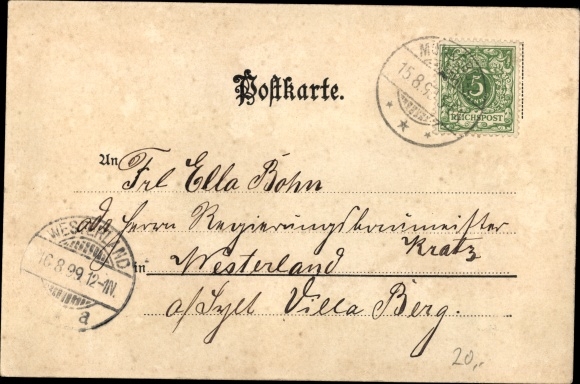 Postkarte.
15.8.99
5
REICHSPOST
An Frl Ella Bohn
Herrn Regierungsbaumeister
Kratz
in Westerland
a/Sylt Villa Berg.
WESTERLAND
16.8.99.12-1N.
a
20,-